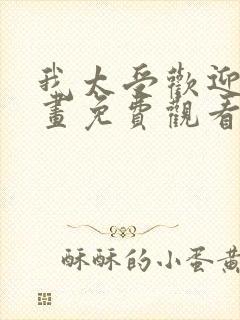 我太受歡迎
畫免費觀看
酥酥的小蛋黃